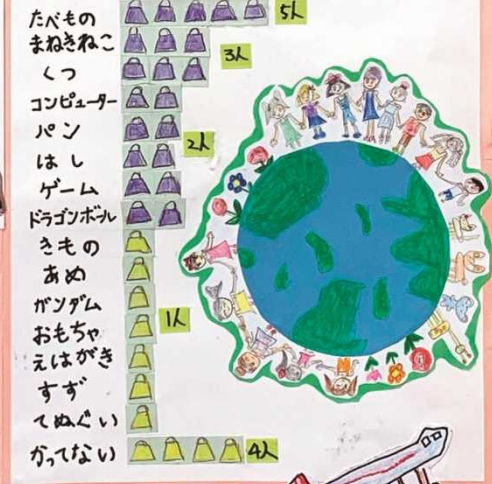 たべもの 5人
まねきねこ
3人
くつ
コンピューター
パン
2人
はし
ゲーム
ドラゴンボール
きもの
あめ
ガンダム
1人
おもちゃ
えはがき
すず
てぬぐい
かってない 4人